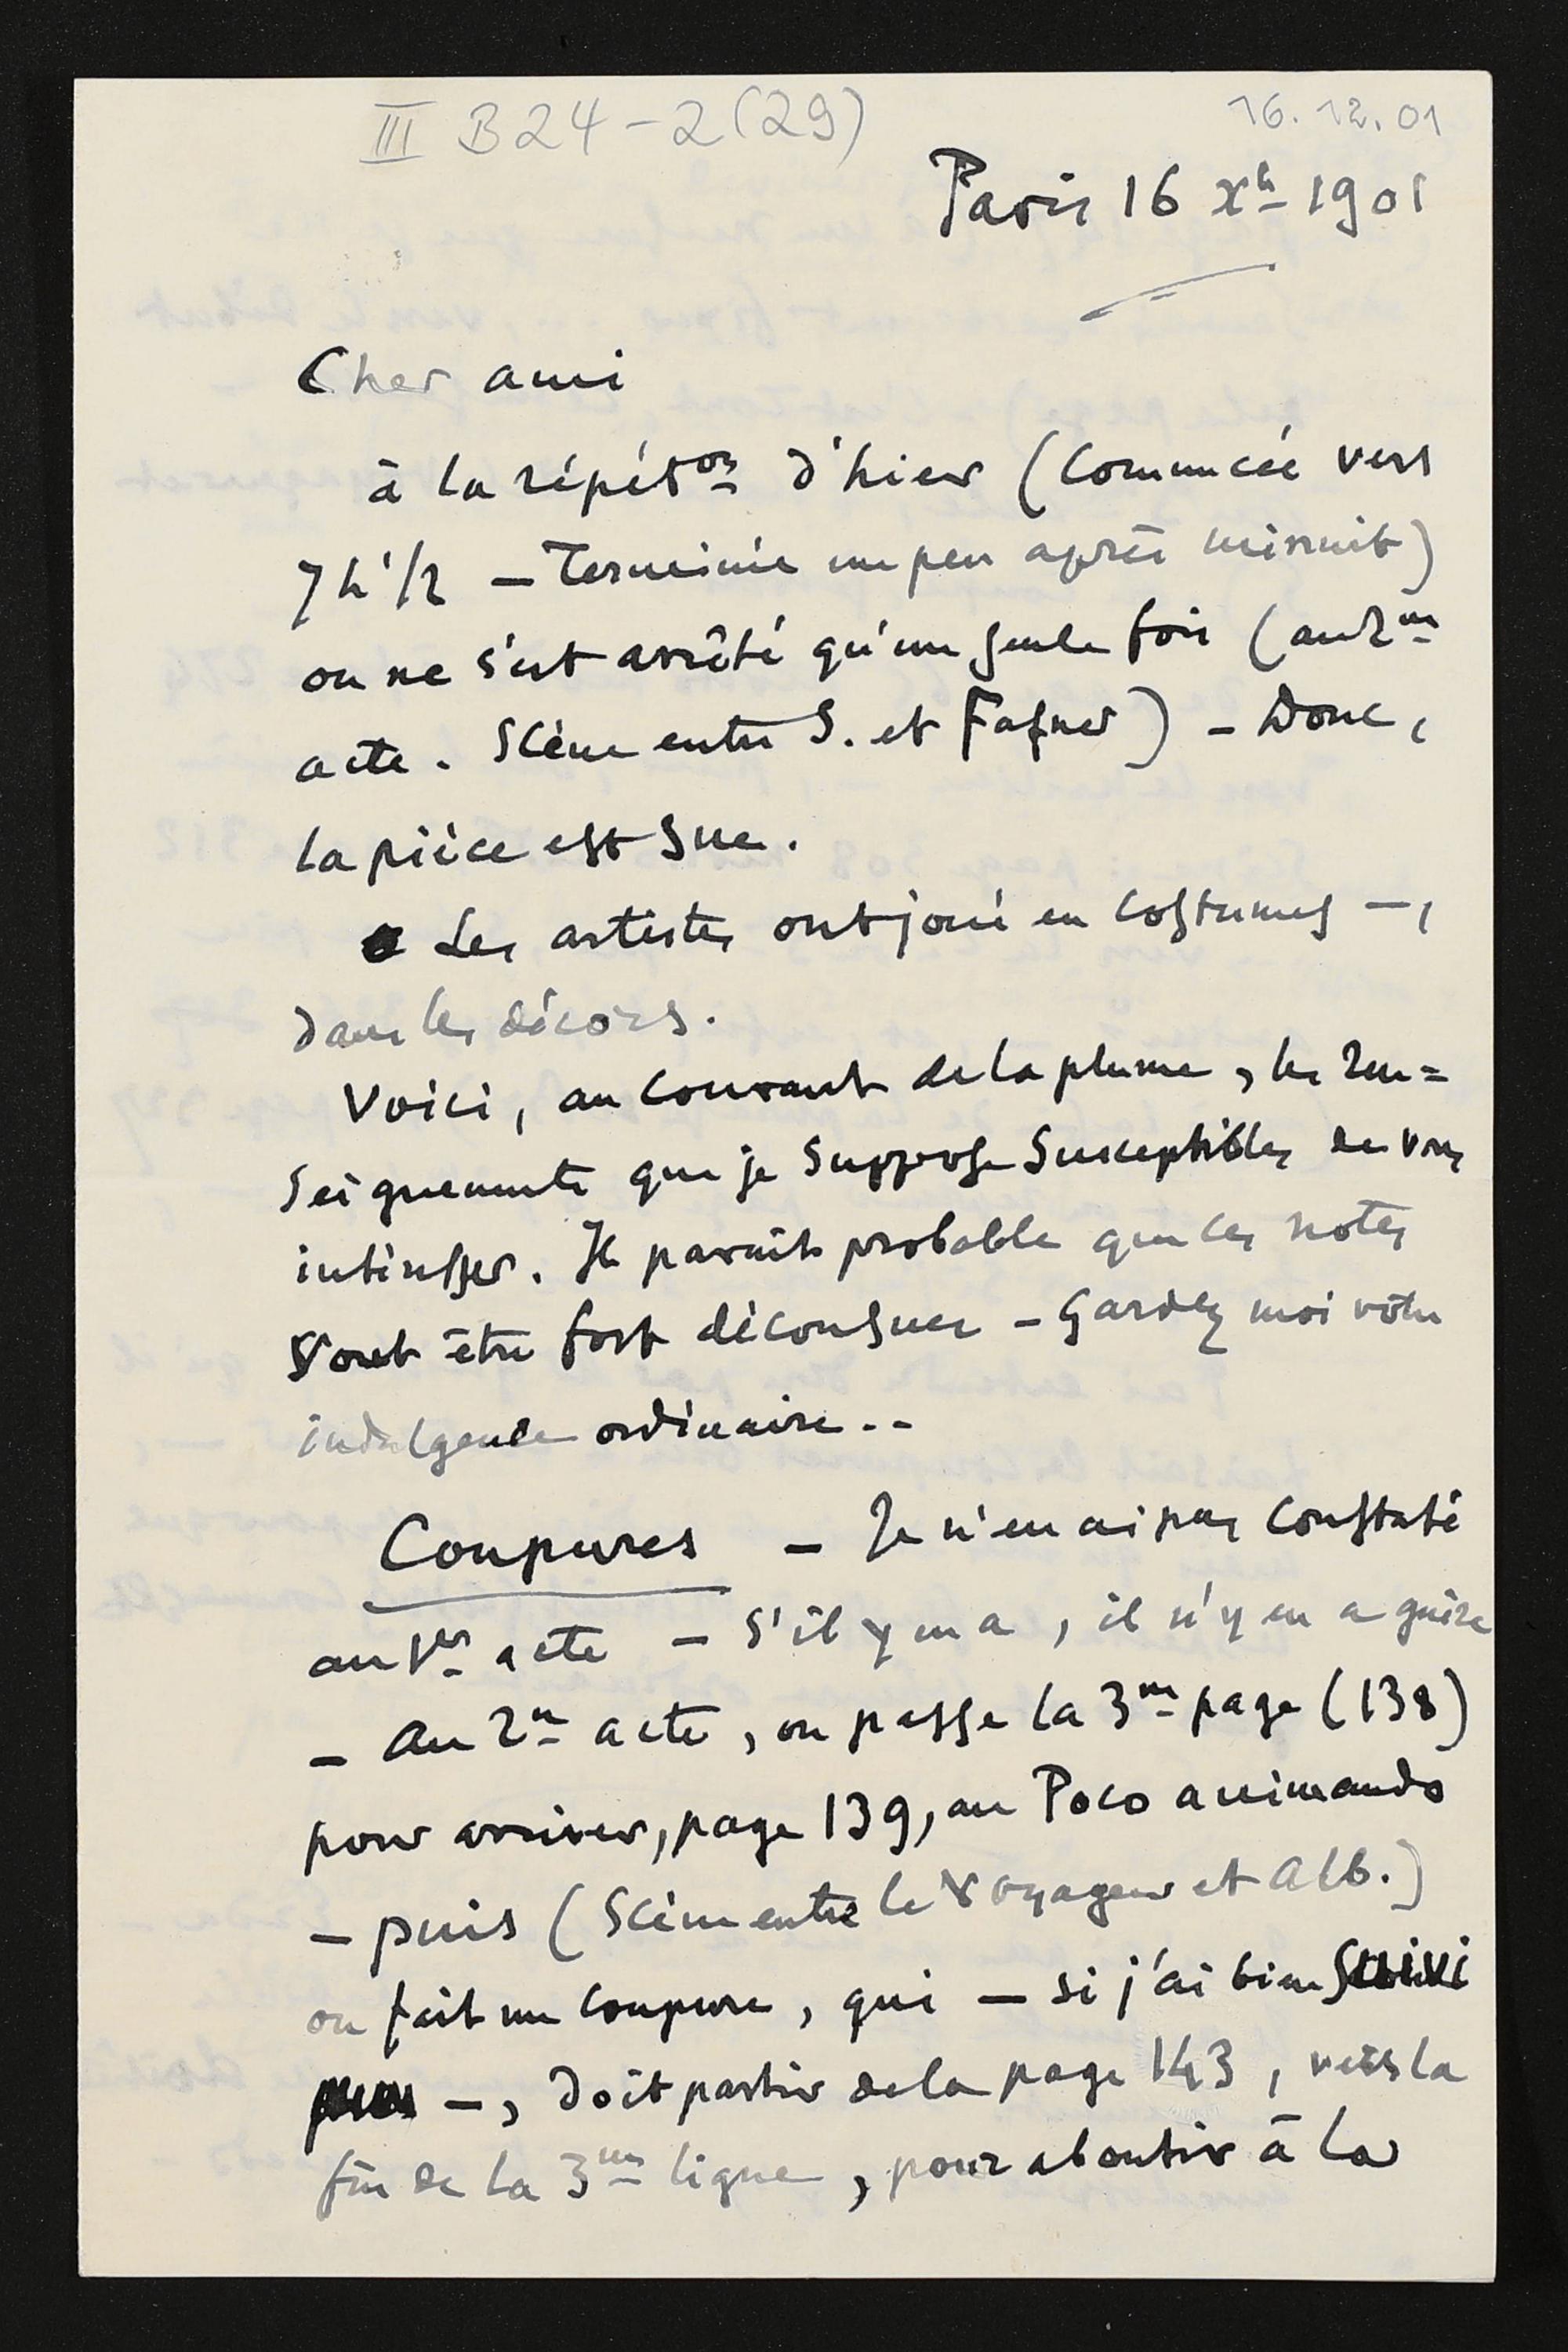 III B 24 - 2 (29)
16. 12. 01
Paris 16 Xb 1901
Cher ami
à la répéton d'hier (commencée vers
7h 1/2 — Terminée un peu après minuit)
on ne s'est arrêté qu'une seule fois (au 2me
acte. Scène entre S. et Fafner) – Donc,
la pièce est sue.
Les artistes ont joué en costumes —,
dans les décors.
Voici, au courant de la plume, les ren=
seignements que je suppose susceptibles de vous
intéresser. Il paraît probable que ces notes
vont être fort décousues – Gardez moi votre
indulgence ordinaire..
Coupures – Je n'en ai pas constaté
au 1er acte – S'il y en a, il n'y en a guère
– Au 2me acte, on passe la 3me page (138)
pour arriver, page 139, au Poco animando
– puis (Scène entre le Voyageur et Alb.)
on fait une coupure, qui — si j'ai bien suivi
—, doit partir de la page 143, vers la
fin de la 3me ligne, pour aboutir à la